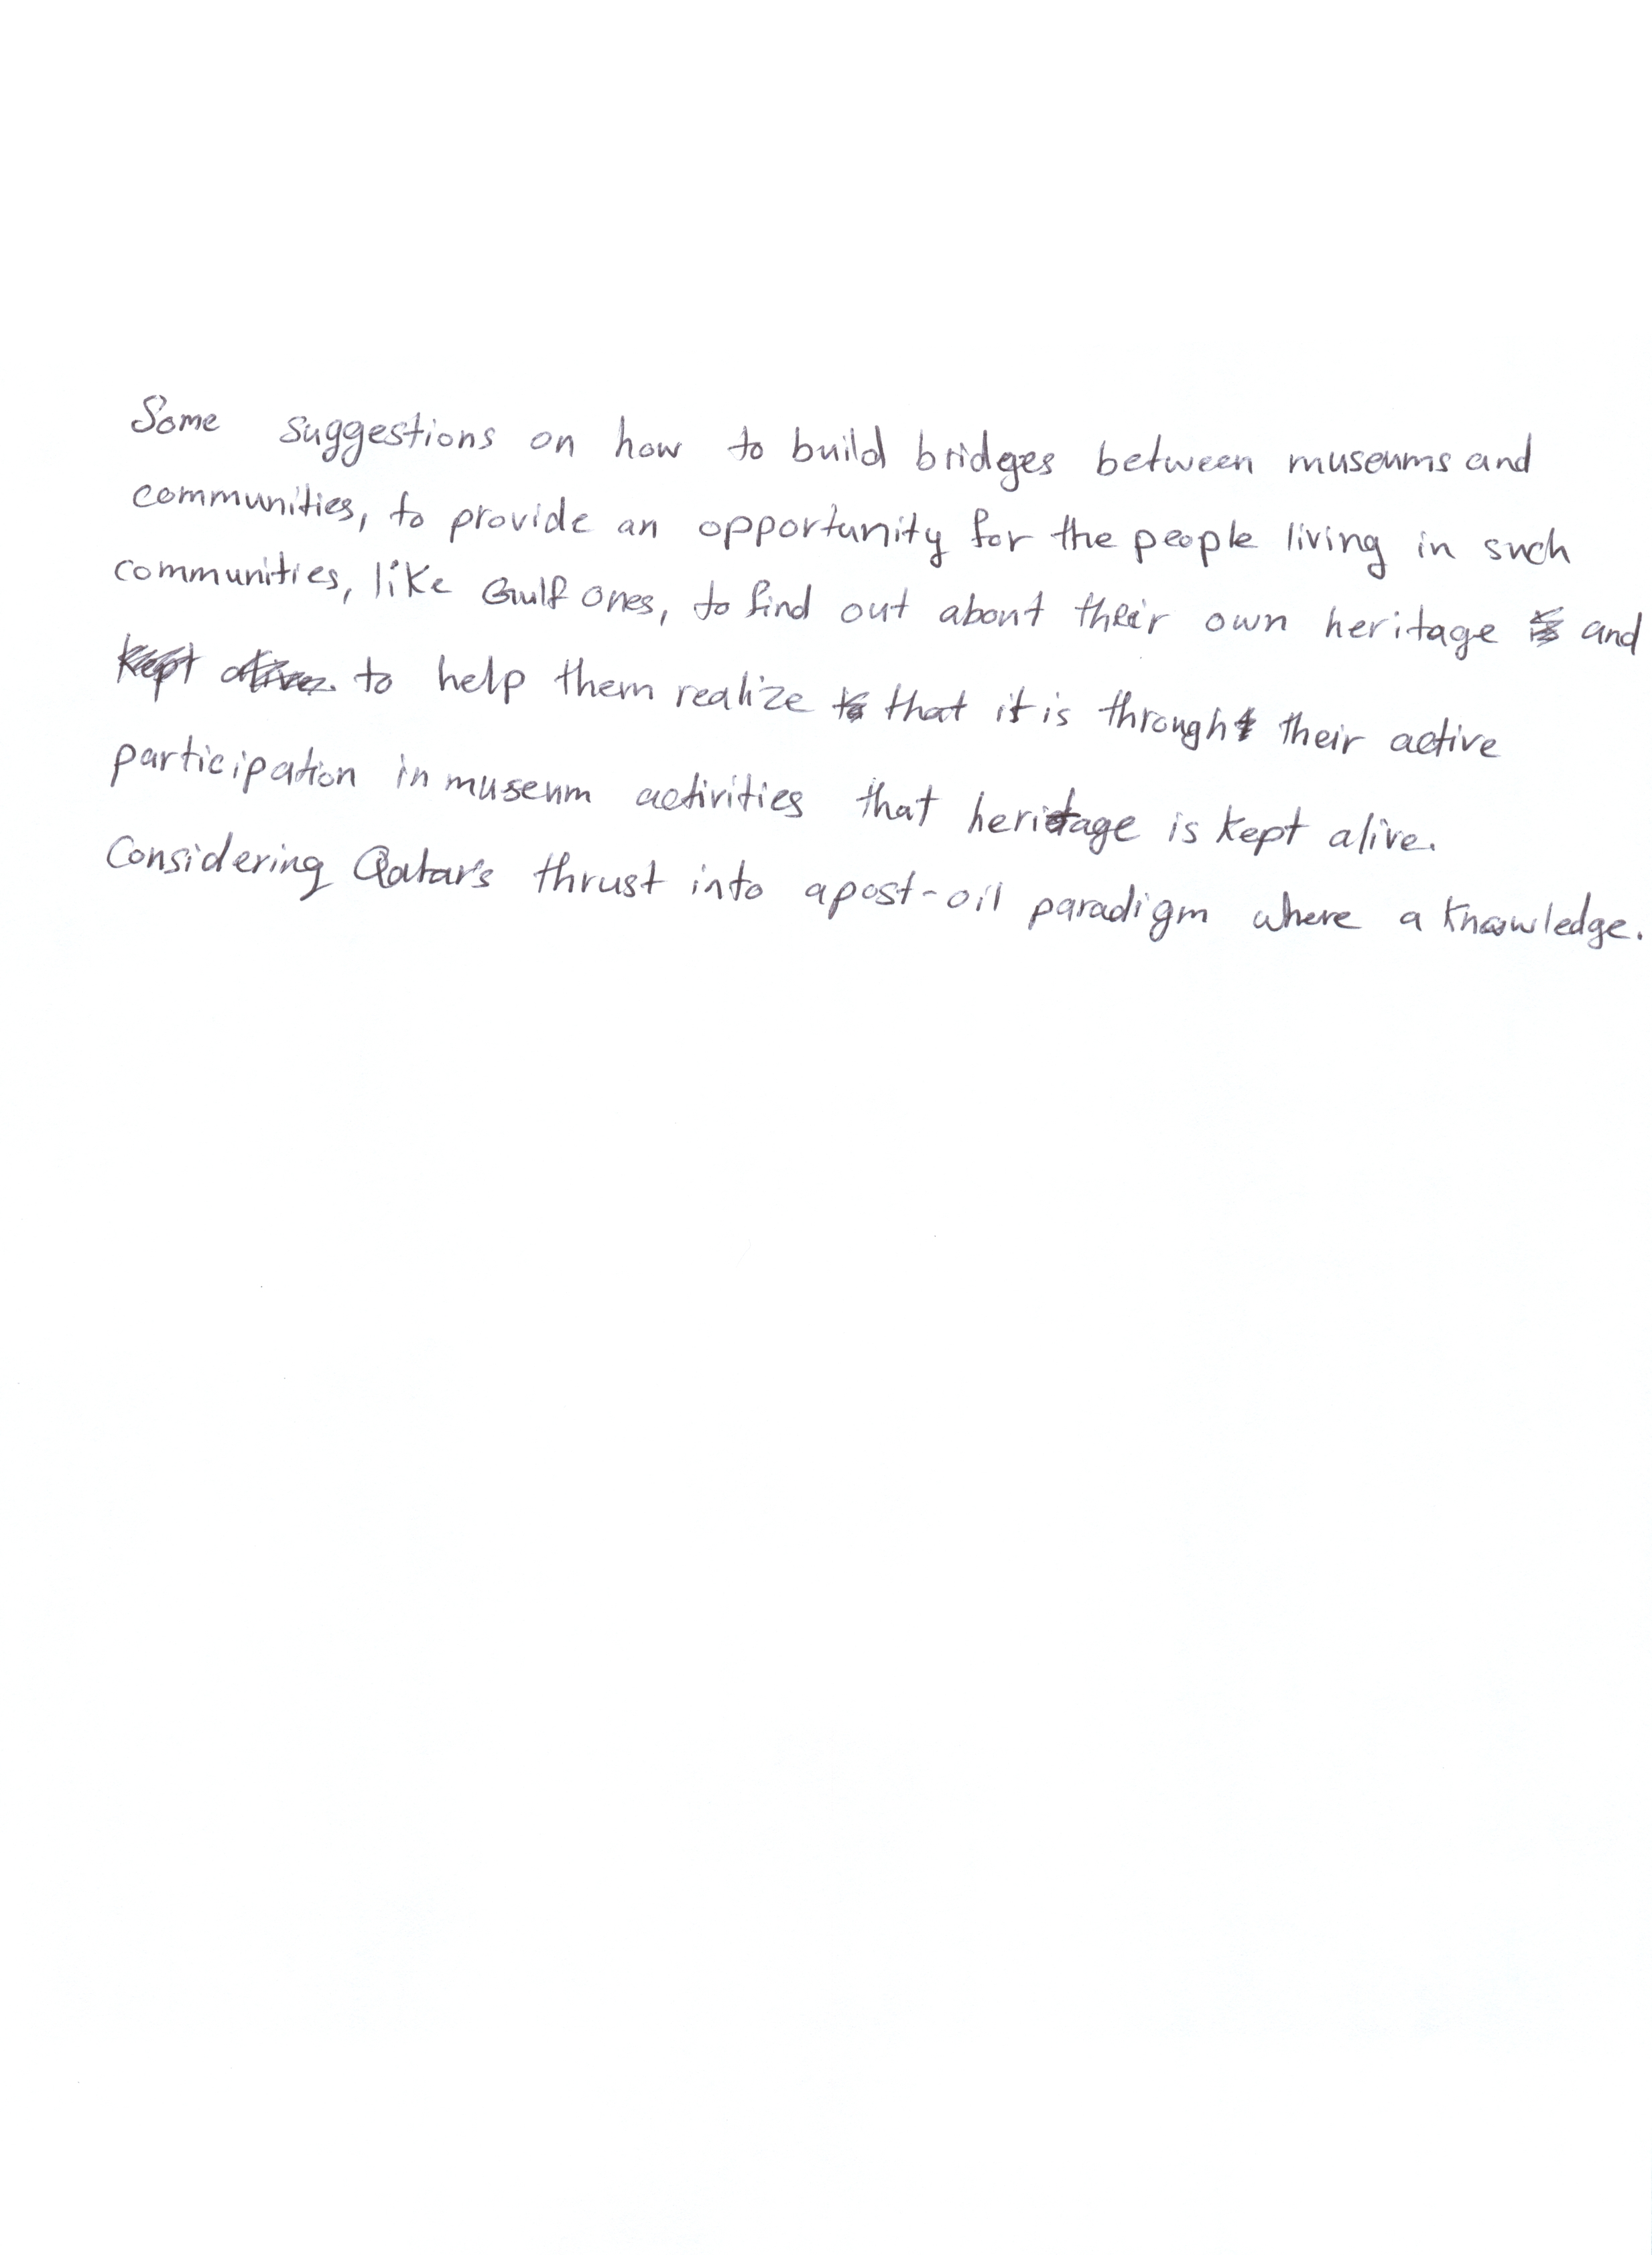 Some suggestions on how to build bridges between museums and
communities, to provide an opportunity for the people living in such
communities, like Gulf ones, to find out about their own heritage and
to help them realize that it is through their active
participation in museum activities that heritage is kept alive.
Considering Qatar's thrust into a post-oil paradigm where a knowledge.